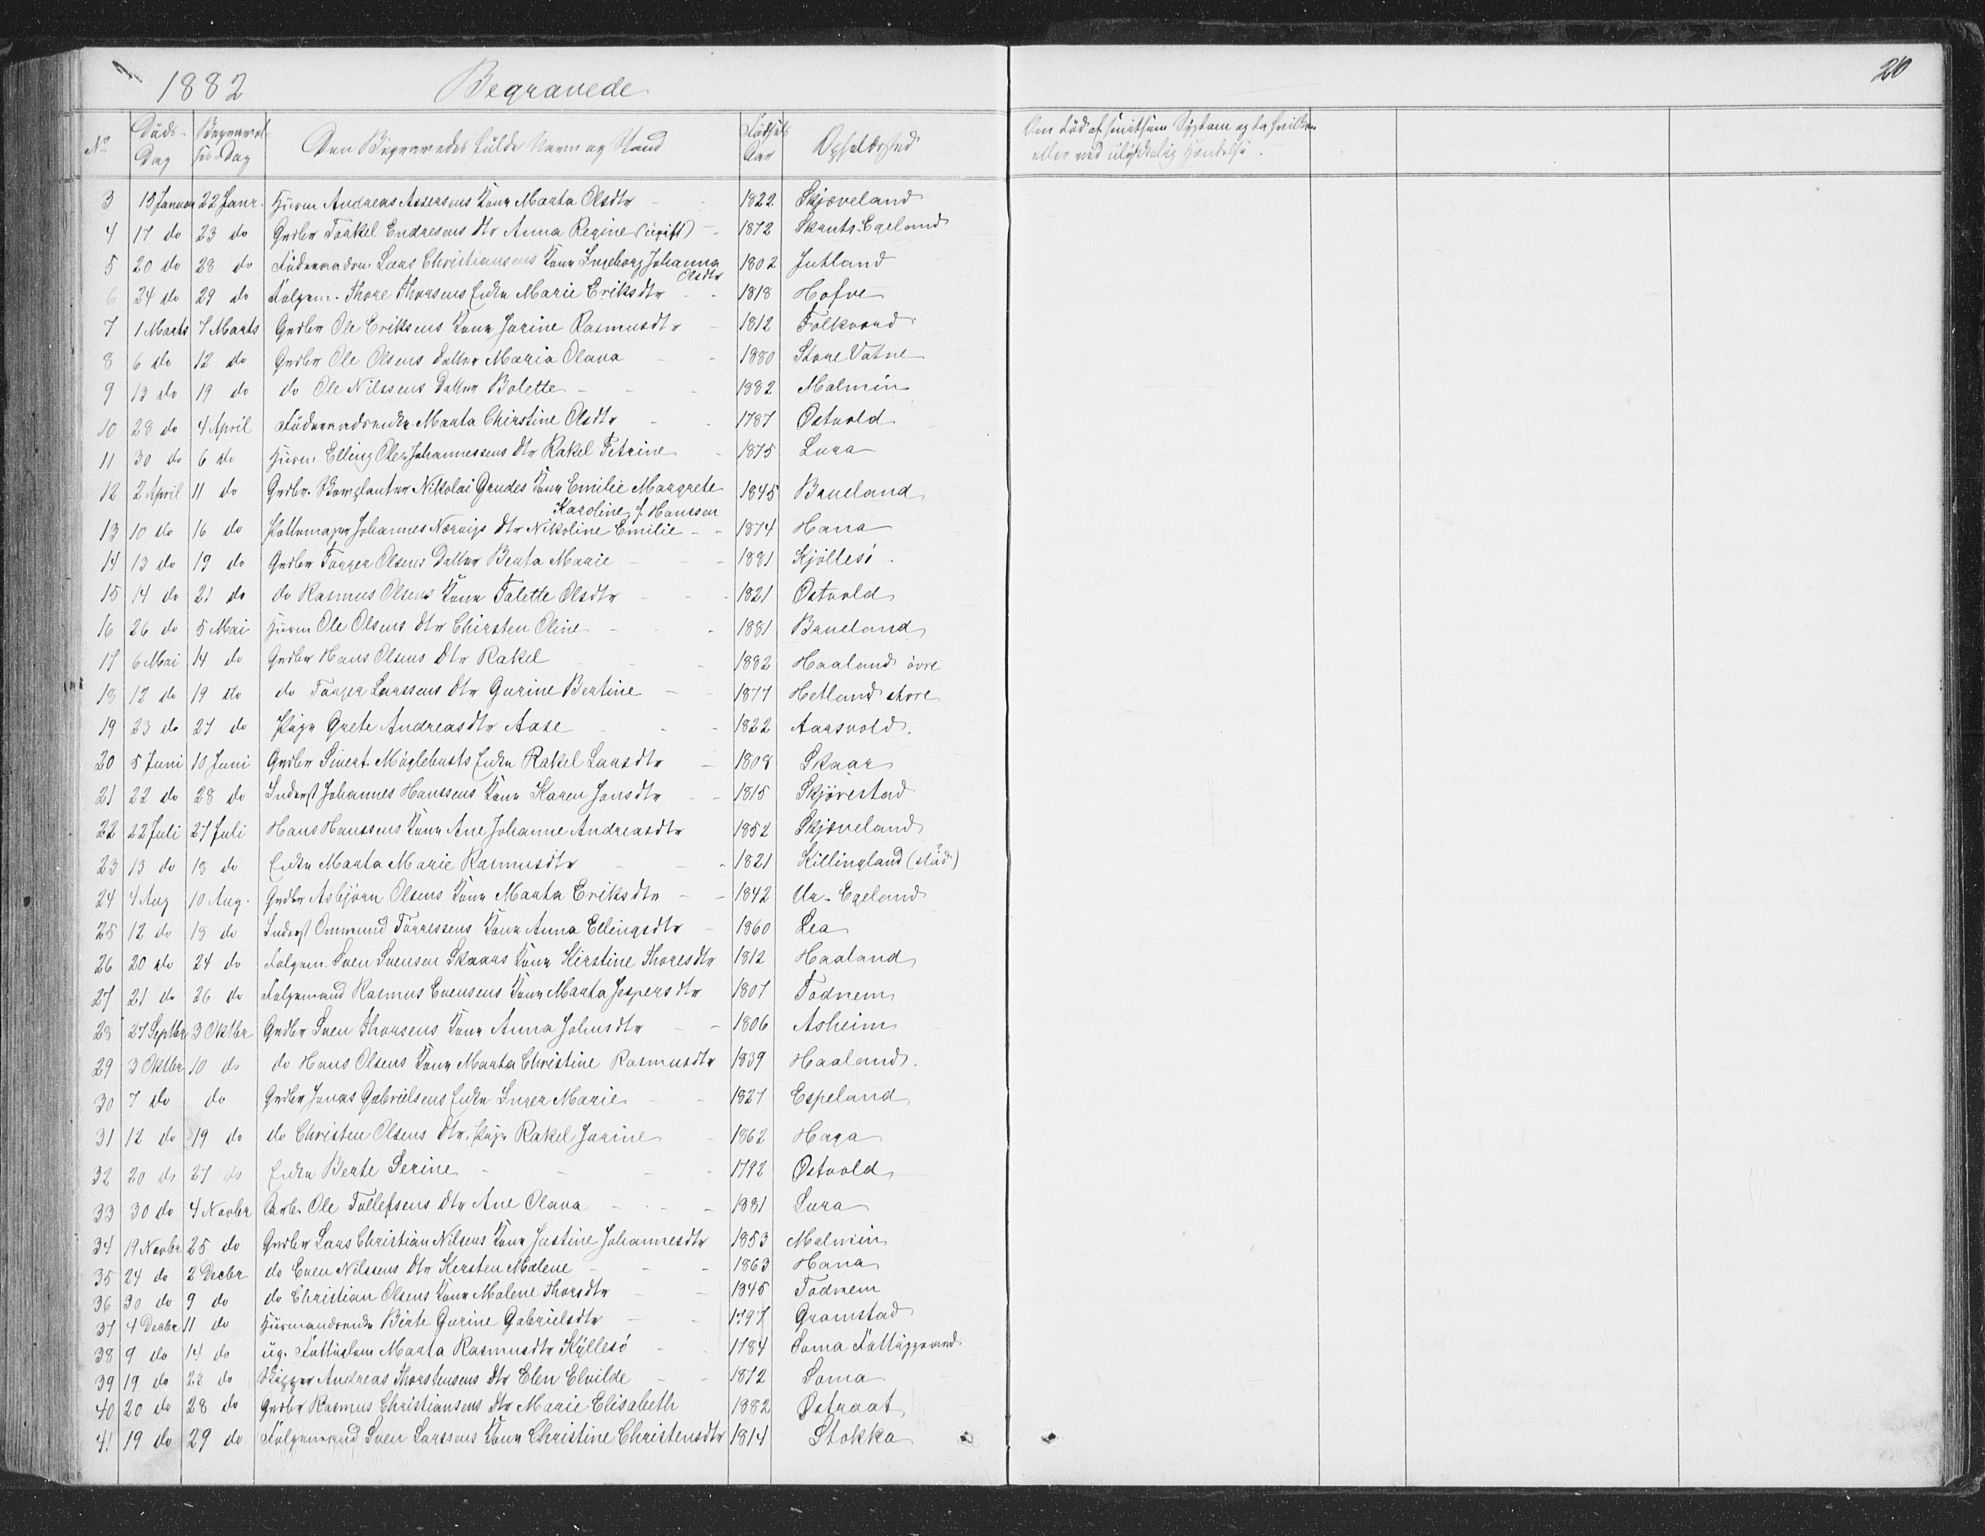 1882 Begravede 20
No Døds-Dag Begravelses-Dag Den Begravedes fulde Navn og Stand Fødsels Aar Opholdssted Om død af smitsom Sygdom og da hvilken eller ved ulykkelig Hændelse.
3 15 Januar 22 Janr. Husm Andreas Assersens Kone Marta Olsdtr 1822 Skjæveland
4 17 do 23 do Grdbr Torkel Endresens dtr Anna Regine (ugift) 1872 Skants-Egeland
5 20 do 28 do Føderaadsm Lars Christiansens Kone Ingeborg Johanna Olsdtr 1802 Jutland
6 24 do 29 do Folgem. Thore Thorsens Enke Marie Eriksdtr 1818 Hofve
7 1 Marts 7 Marts Grdbr Ole Eriksens Kone Jorine Rasmusdtr 1812 Folkvord
8 6 do 12 do Grdbr Ole Olsens Datter Maria Olava 1880 Store Vatne
9 13 do 19 do do Ole Nilssens Datter Bolette 1882 Malmin
10 28 do 4 April Føderaadsenke Marta Chirstine Olsdtr 1787 Østvold
11 30 do 6 do Husm Elling Olen Johannessens dtr Rakel Petrine 1875 Lura
12 2 April 11 do Grdbr. Nikolai Grudes Kone Emilie Margrete Karoline f. Hanssen 1845 Brueland
13 10 do 16 do Pottemager Johannes Norvigs dtr Nikoline Emilie 1874 Hana
14 13 do 19 do Grdbr Torger Olsens Datter Berta Marie 1881 Kjøllesø
15 14 do 21 do do Rasmus Olsens Kone Talette Olsdtr 1821 Østvold
16 26 do 5 Mai Husm Ole Olsens dtr Chirsten Oline 1881 Brueland
17 6 Mai 14 do Grdbr Hans Olsens Dtr Rakel 1882 Haaland øvre
18 12 do 19 do do Torger Larssens dtr Gurine Bertine 1877 Hetland store
19 23 do 27 do Pige Grete Andreasdtr Aase 1822 Aarsvold.
20 5 Juni 10 Juni Grdbr Sivert Møglebusts Enke Rakel Larsdtr 1808 Skaar
21 22 do 28 do Inderst Johannes Hanssens Kone Karen Jonsdtr 1815 Skjørestad
22 22 Juli 27 Juli Hans Hanssens Kone Ane Johanne Andreasdtr 1852 Skjæveland
23 13 do 18 do Enke Marta Marie Rasmusdtr 1821 Killingland
24 4 Aug 10 Aug. Grdbr Asbjørn Olsens Kone Marta Eriksdtr 1842 Ur-Egeland
25 12 do 18 do Inderst Ommund Torressens Kone Anna Ellingsdtr 1860 Lea
26 20 do 24 do Folgem. Sven Svensen Skaars Kone Kirstine Thoresdtr 1812 Haaland
27 21 do 26 do Folgemand Rasmus Evensens Kone Marta Jespersdtr 1807 Todnem
28 27 Septbr 3 Oktbr Grdbr Sven Thorsens Kone Anna Johnsdtr 1806 Asheim
29 3 Oktbr 10 do do Hans Olsens Kone Marta Christine Rasmusdtr 1839 Haaland.
30 7 do do Grdbr Jonas Gabrielsens Enke Inger Marie 1827 Espeland
31 12 do 19 do do Christen Olsens dtr. Pige Rakel Jorine 1862 Haga
32 20 do 27 do Enke Berte Serine 1792 Østvold
33 30 do 4 Novbr Arb. Ole Tollefsens dtr Ane Olava 1881 Lura
34 19 Novbr 25 do Grdbr Lars Christian Nilsens Kone Justine Johannesdtr 1853 Malmin
35 24 do 2 Decbr do Even Nilssens dtr Kersten Malene 1863 Hana
36 30 do 9 do do Christian Olsens Kone Malene Thorsdtr 1845 Todnem
37 4 Decbr 11 do Husmandsenke Birte Gurine Gabrielsdtr 1797 Gramstad
38 9 do 14 do ug. Fattiglem Marta Rasmusdtr Kyllesø 1784 Soma Fattiggaard
39 19 do 22 do Andreas Thorstensens dtr Elen Elvilde 1872 Soma
40 20 do 28 do Grdbr Rasmus Christiansens dtr Marie Elisabeth 1882 Østraat
41 19 do 29 do Folgemand Sven Larssens Kone Christine Christensdtr 1814 Stokka